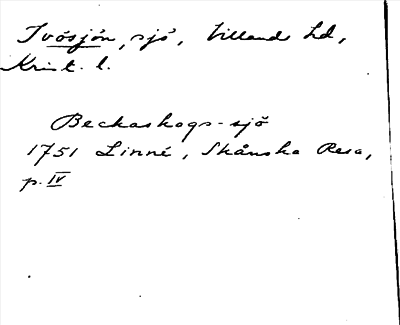 Ivösjön, sjö, Villands hd,
Krist. l.
Beckaskogs-sjö
1751 Linné, Skånska Resa,
p. IV